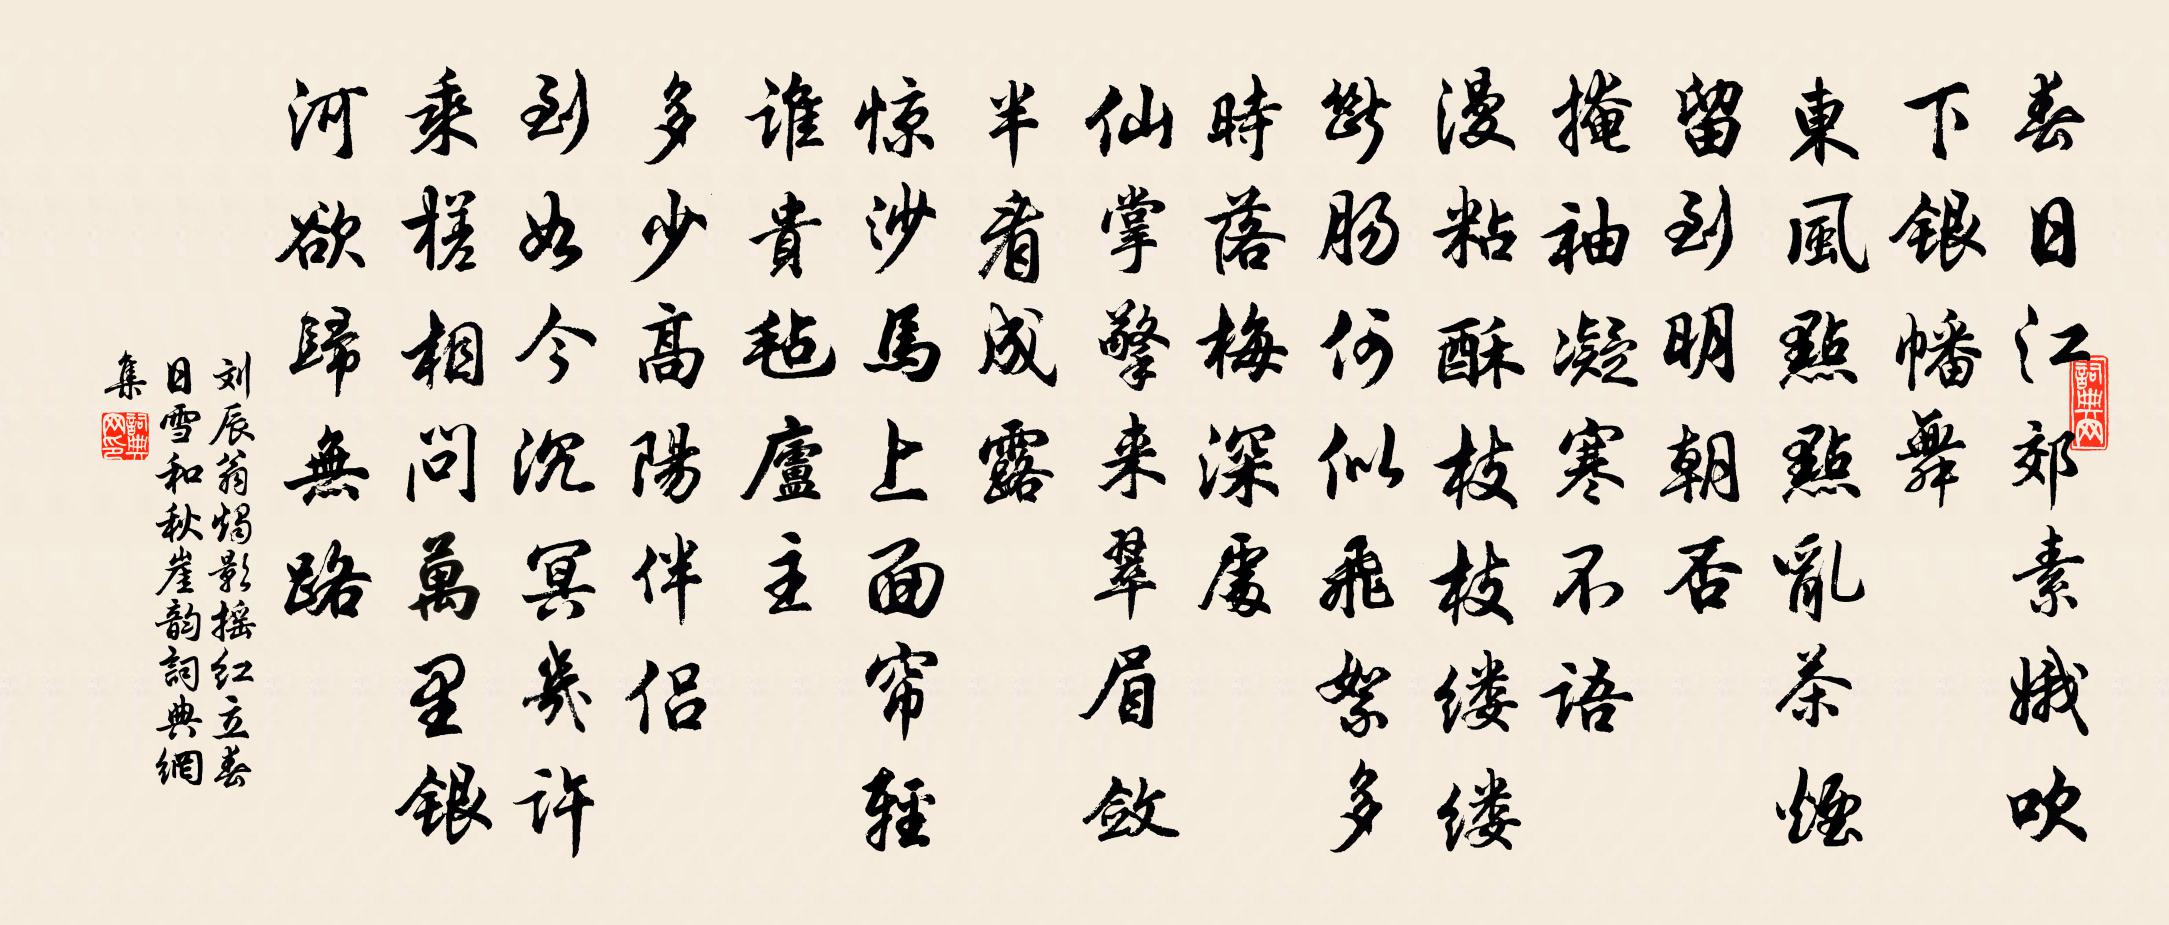 春日江郊素娥吹
下银幡舞
東風點點亂茶煙
留到明朝否
掩袖凝寒不语
漫粘酥枝枝缕缕
断肠何似飛絮多
時落梅深處
仙掌擎来翠眉敛
半看成露
惊沙馬上面帘輕
谁貴毡廬主
多少高陽伴侣
到如今沉冥幾许
乘槎相问萬里银
河欲歸無路
刘辰翁燭影摇红立春
日雪和秋崖韵詞典網
集
詞典网
詞典网印